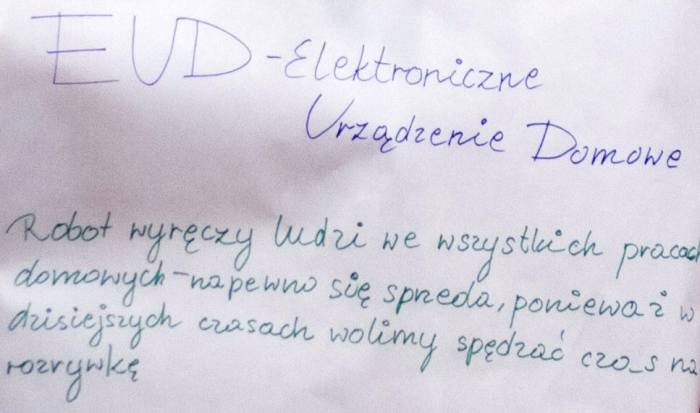 EUD - Elektroniczne
Urządzenie Domowe
Robot wyręczy ludzi we wszystkich pracach
domowych - napewno się sprzeda, ponieważ w
dzisiejszych czasach wolimy spędzać czas na
rozrywkę